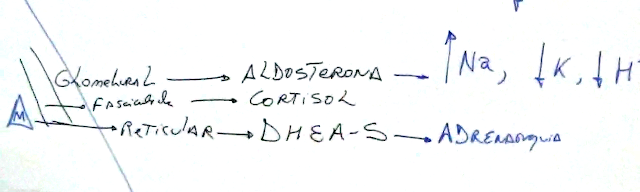 Glomerural → ALDOSTERONA → ↑Na, ↓K, ↓H
Fascicular → CORTISOL
M → RETICULAR → DHEA-S → ADRENARQUIA